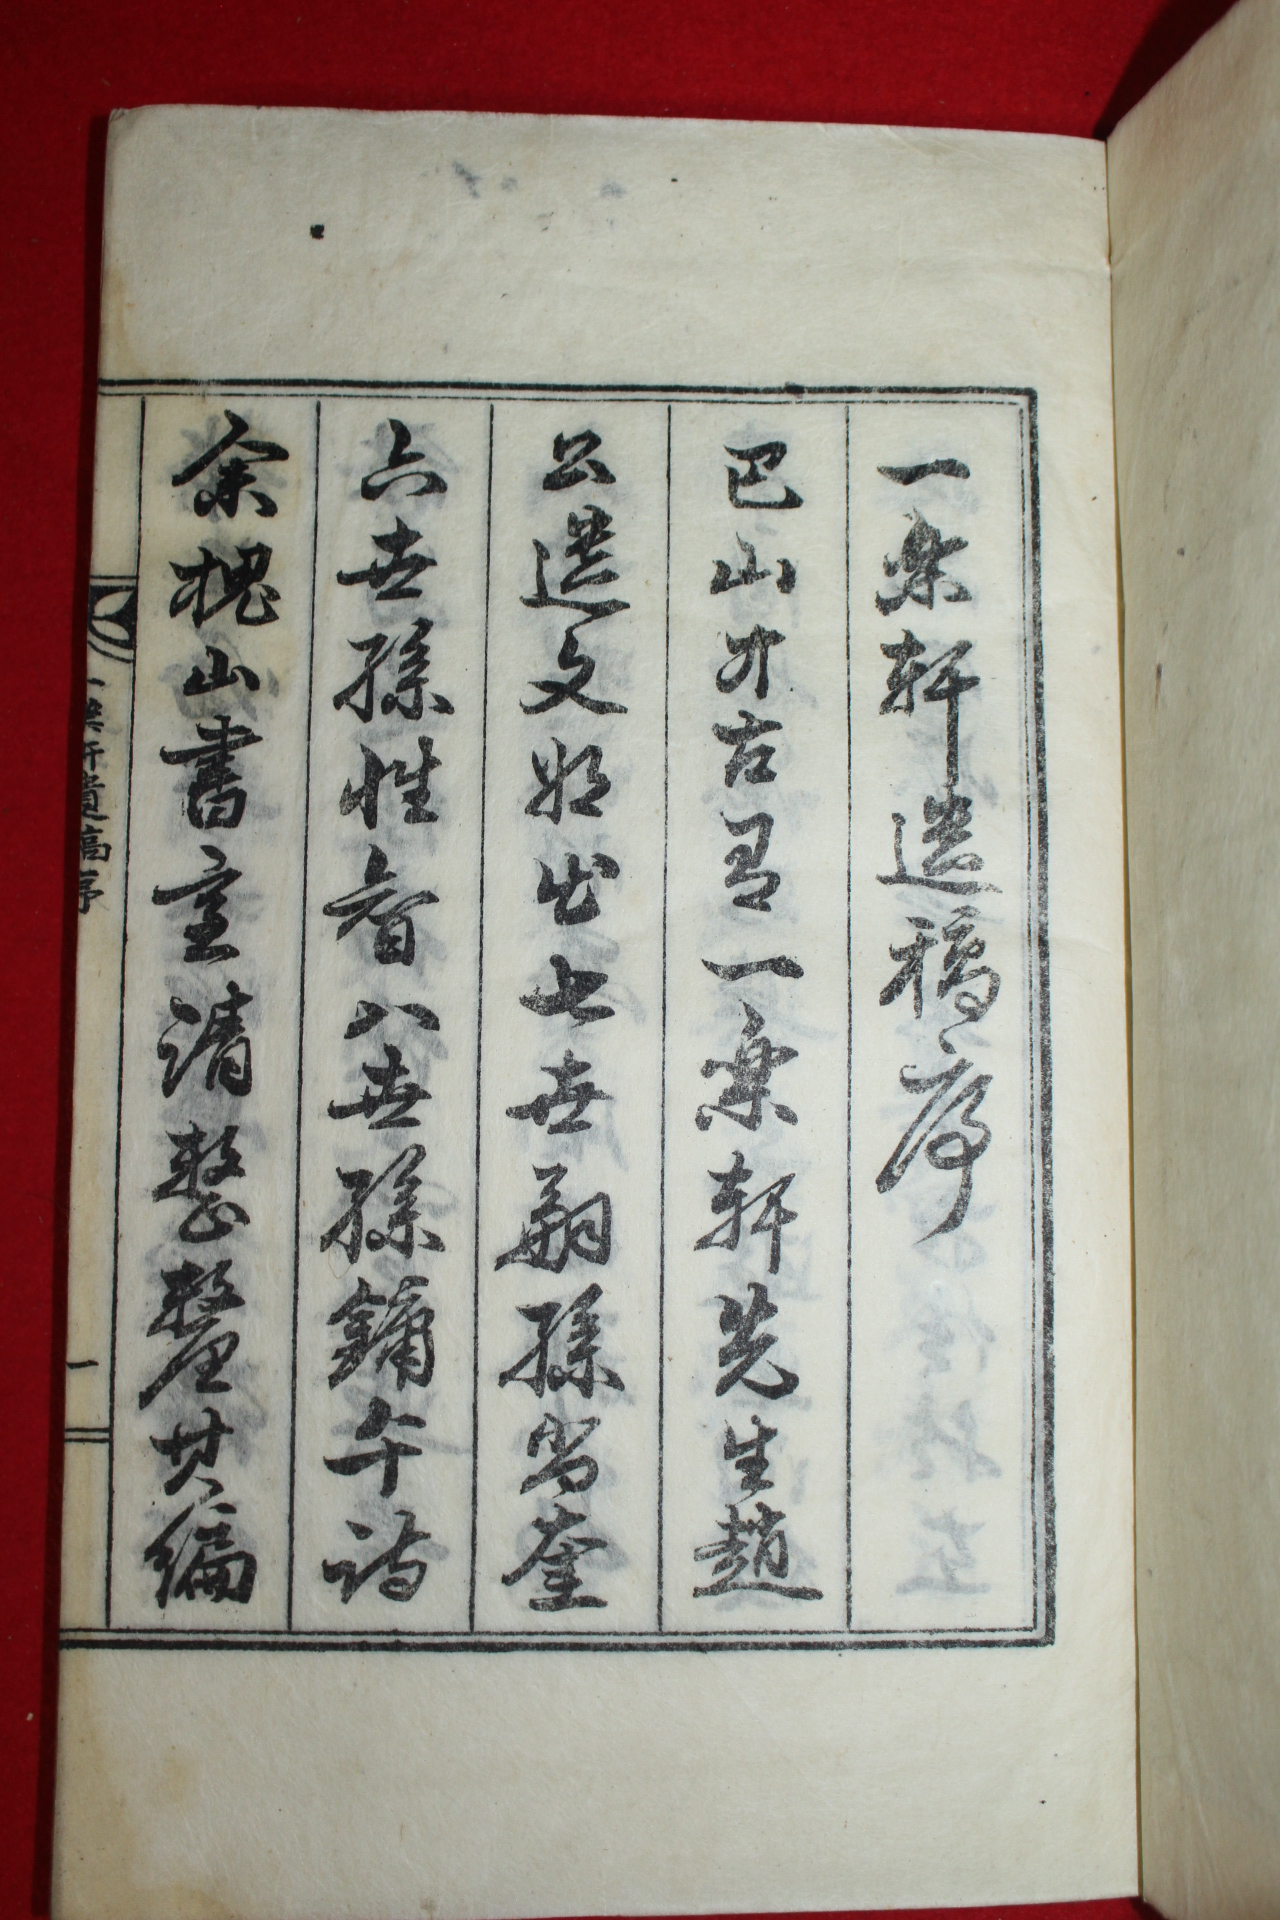 一樂軒遺稿序
巴山才古有一樂軒先生趙
公遺文將出七世嗣孫尚奎
六世孫性睿八世孫鏞午訪
余槐山書室請整釐其編
一樂軒遺稿序
一